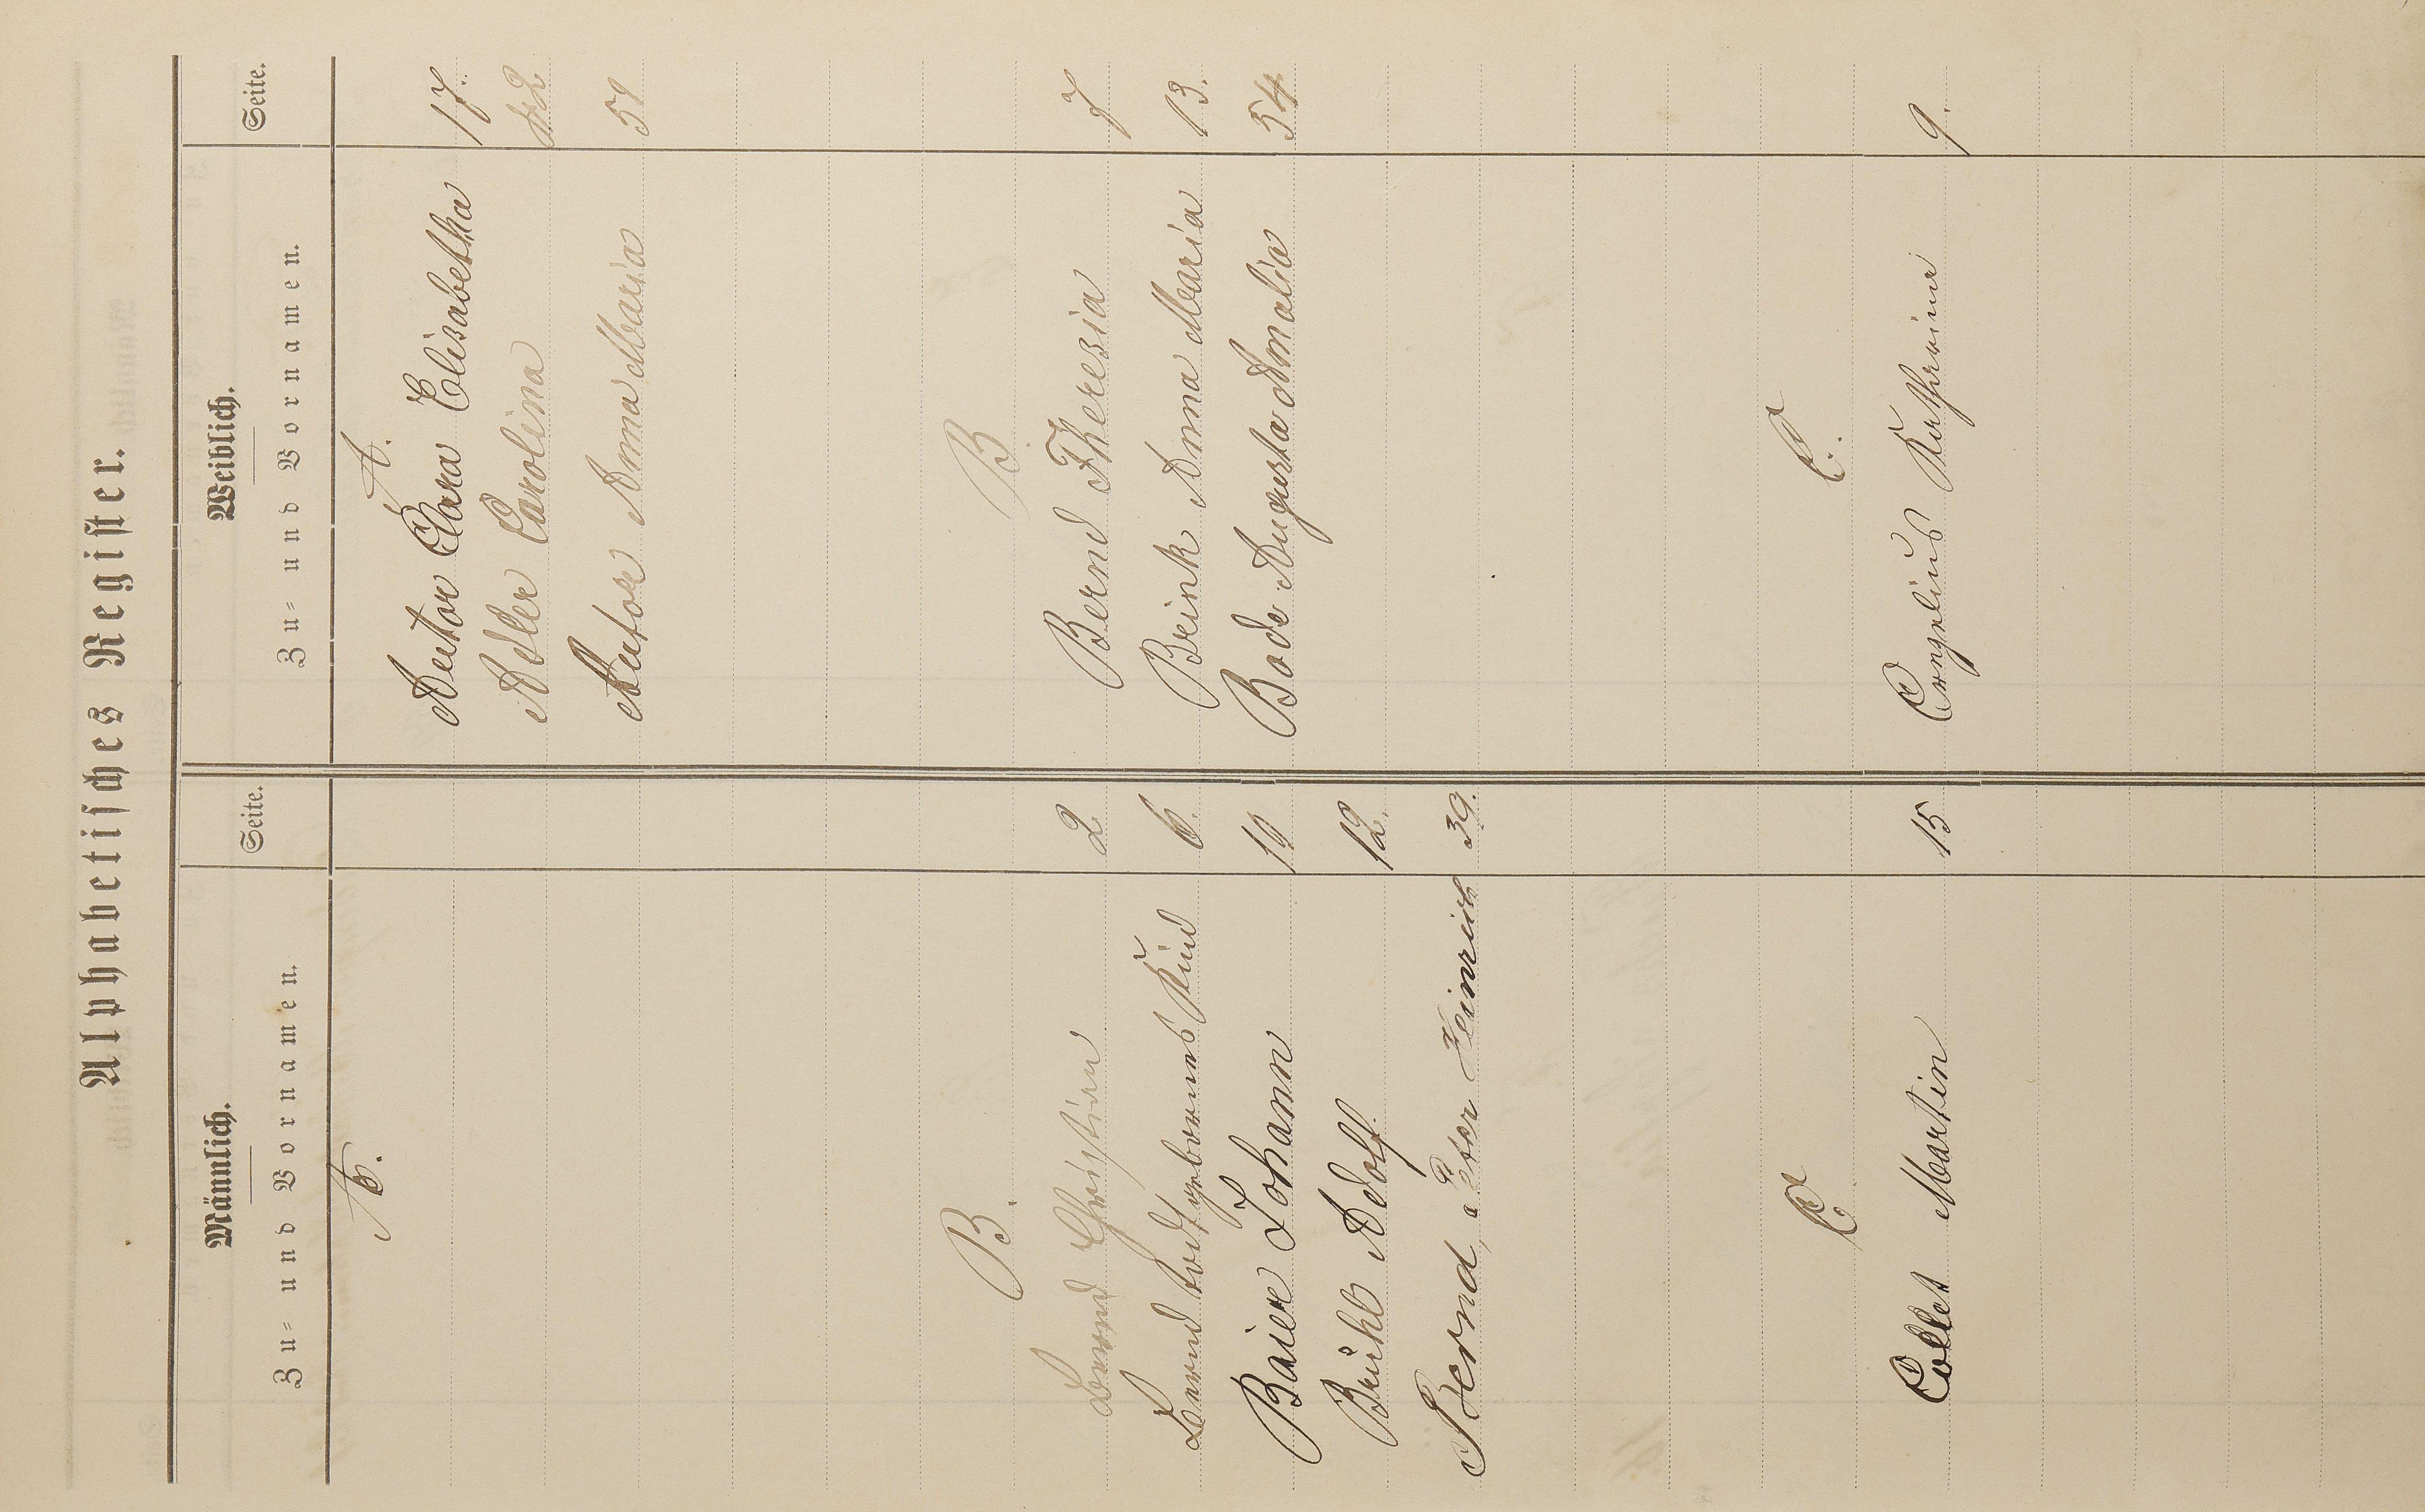 Alphabetisches Register.
Männlich.
Zu= und Vornamen.
Seite.
Weiblich.
Zu= und Vornamen.
Seite.
A.
B.
Bernd Christian 2
Bernd todtgebornes Kind 6.
Baier Johann 10
Brühl Adolf 12.
Bernd, Peter Heinrich 39.
C
Collet Martin 15
A.
Autor Clara Elisabetha 17.
Adler Carolina 42
Autor Anna Maria 51
B.
Bernd Theresia 7
Brink Anna Maria 13.
Bode Augusta Amalia 54
C.
Cornelius Katharina 9.